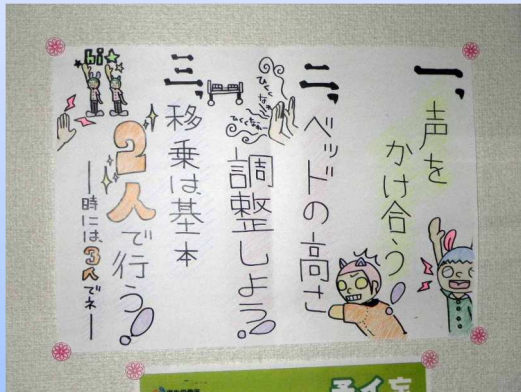 一、
声を
かけ合う!
二、
ベッドの高さ
調整しよう!
三、
移乗は基本
2人で行う!
―時には、3人でネ―